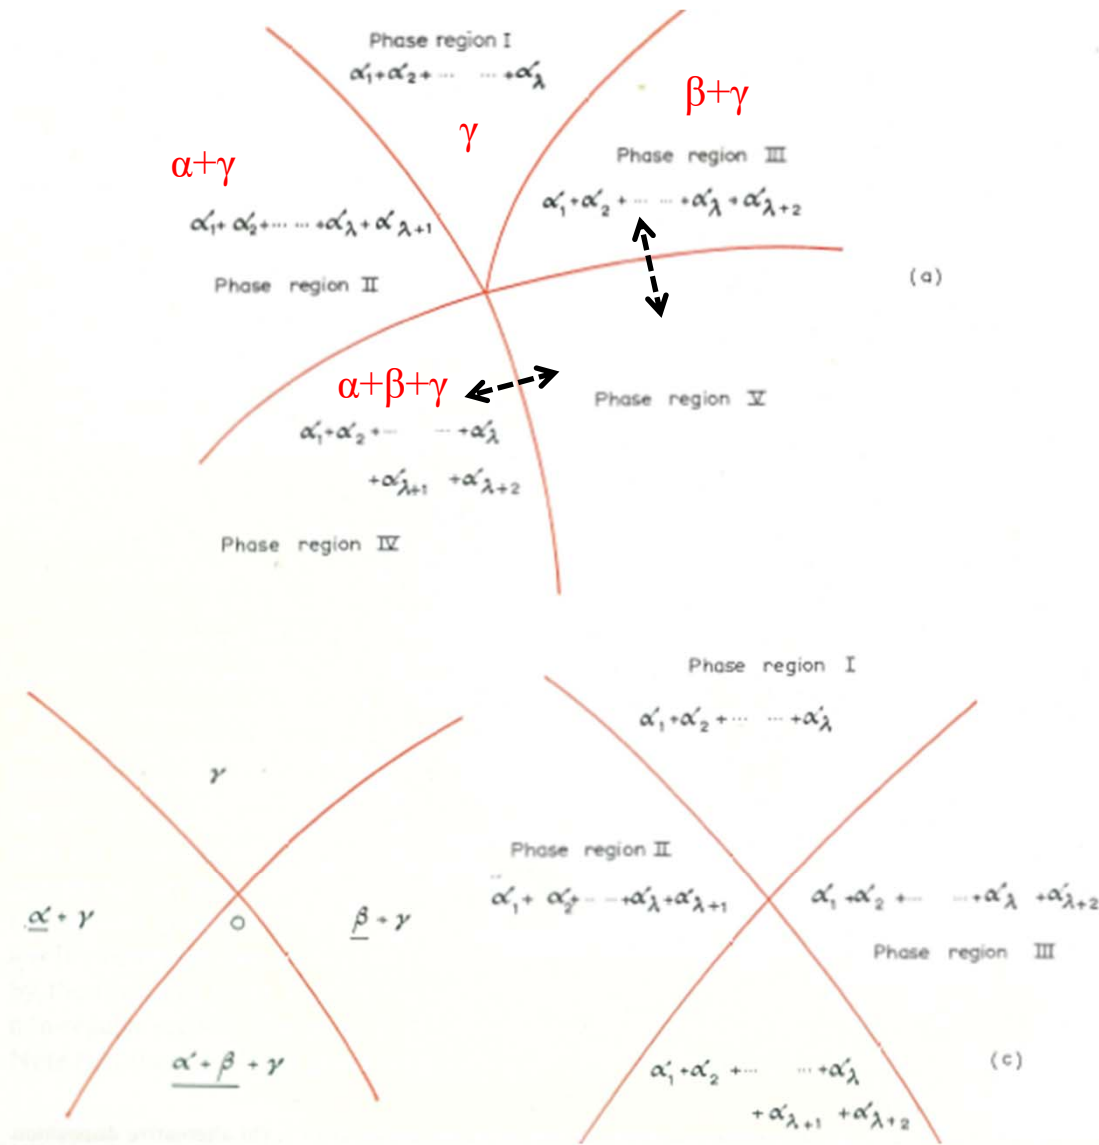 Phase region I
α₁+α₂+ ··· ··· +α_λ
γ
β+γ
Phase region III
α₁+α₂+ ··· ··· +α_λ+α_λ+2
α+γ
α₁+α₂+ ··· ··· +α_λ+α_λ+1
Phase region II
(a)
α+β+γ
α₁+α₂+ ··· ··· +α_λ
+α_λ+1 +α_λ+2
Phase region V
Phase region IV
Phase region I
α₁+α₂+ ··· ··· +α_λ
γ
Phase region II
α₁+α₂+ ··· ··· +α_λ+α_λ+1
α₁+α₂+ ··· ··· +α_λ +α_λ+2
Phase region III
α + γ
O
β + γ
α + β + γ
α₁+α₂+ ··· ··· +α_λ
+α_λ+1 +α_λ+2
(c)